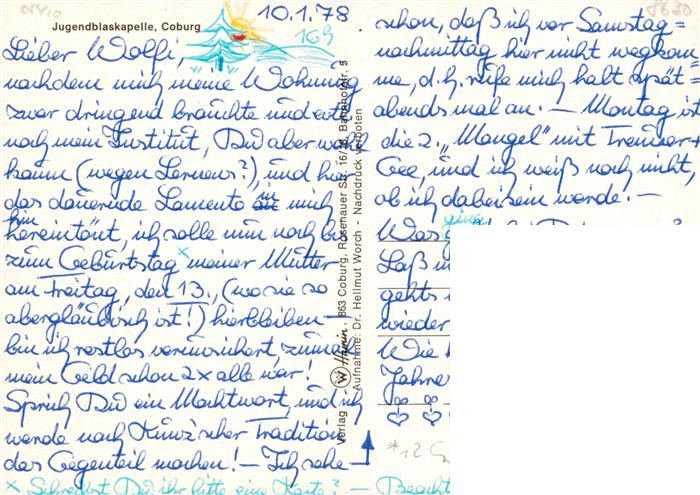 Jugendblaskapelle, Coburg
10.1.78
16h
Lieber Wolfi,
nachdem mich meine Wohnung
zwar dringend brauchte und evtl.
noch mein Institut, Du aber wohl
kaum (wegen Lernens?), und hier
das dauernde Lamento in mich
hin
hereintönt, ich solle nun noch bis
zum Geburtstag x meiner Mutter
am Freitag, den 13., (wo sie so
abergläubisch ist!) hierbleiben –
bin ich restlos verunsichert, zumal
mein Geld schon 2x alle war!
Sprich Du ein Machtwort, und ich
werde nach Kunz'scher Tradition
das Gegenteil machen! – Ich sehe
x Schreibst Du ihr bitte eine Karte? – Beacht
Verlag Hamin, 863 Coburg, Rosenauer Str. 16/18, Bahnhofstr. 5
Aufnahme: Dr. Hellmut Worch - Nachdruck verboten
schon, daß ich vor Samstag=
nachmittag hier nicht wegkom=
me, d.h. rufe mich halt spät=
abends mal an. – Montag ist
die 2. „Mangel" mit
und ich weiß noch nicht,
ob ich dabeisein werde. –
Was
Laß
gehts
wieder
Wie
Jahre